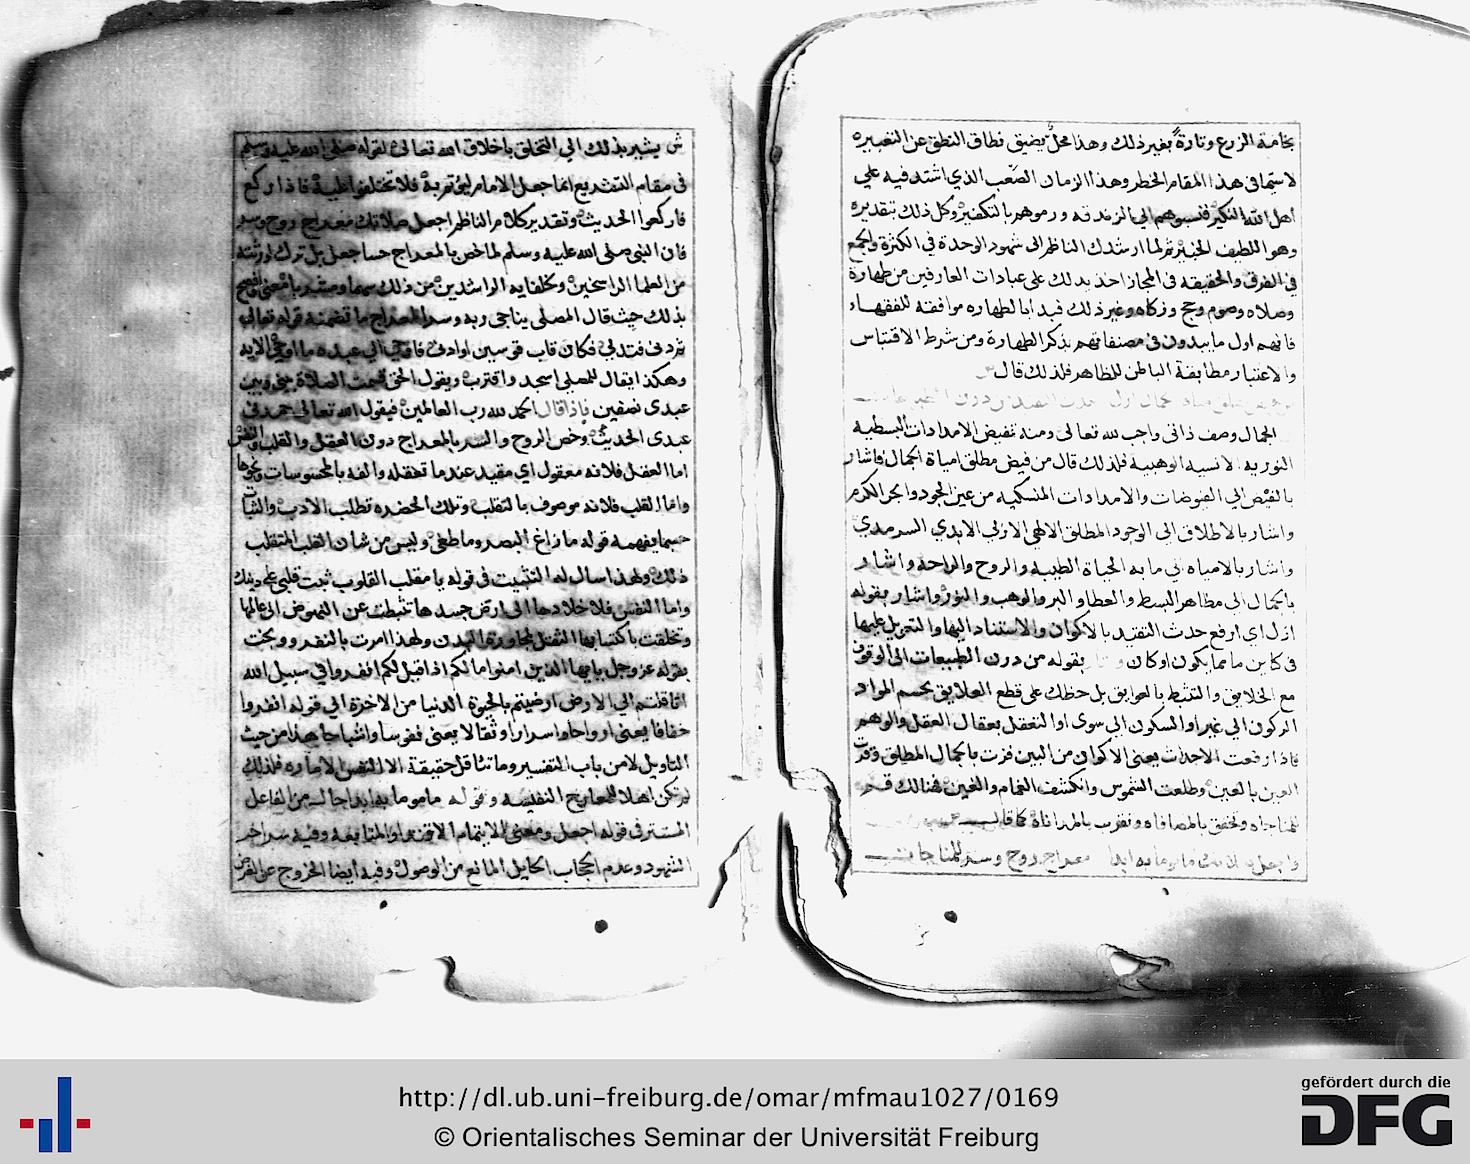 بخامة الزرع وتارة بغير ذلك وهذا محل يضيق نطاق النطق عن التعبيره
لا سيما في هذا المقام الخطر وهذا الزمان الصعب الذي اشتد فيه علي
اهل الله النكير فنسبوهم الي الزندقه ورموهم بالتكفير وكل ذلك بتقديره
وهو اللطيف الخبير ثم لما ارشدك الناظم الى شهود الوحدة في الكثرة والجمع
في الفرق والحقيقه في المجاز اخذ يدلك على عبادات العارفين من طهارة
وصلاه وصوم وحج وزكاه وغير ذلك فبدا بالطهاره موافقة للفقهاء
فانهم اول ما يبدون في مصنفاتهم بذكر الطهارة ومن شرط الاقتباس
والاعتبار مطابقة الباطن للظاهر فلذلك قال
الجمال وصف ذاتى واجب لله تعالى ومنه تفيض الامدادات البسطيه
النوريه الانسيه الوهبية فلذلك قال من فيض مطلق امياة الجمال فاشار
بالفيض الي الفيوضات والامدادات المنسكبه من عين الجود وابحر الكرم
واشار بالاطلاق الي الوجود المطلق الالهي الازلي الابدي السرمدي
واشار بالامياه الي ما به الحياة الطيبه والروح والراحه واشار
بالجمال الي مظاهر البسط والعطا والبر والوهب والنور واشار بقوله
ازل اي ارفع حدث التقيد بالاكوان والاستناد اليها والتعويل عليها
في كاين ما مما يكون او كان بقوله من درن الطبيعات الى الوقوف
مع الخلايق والتثبط بالعوايق بل حظك على قطع العلايق بحسم المواد
الركون الي غير او السكون الي سوى او التعقل بعقال العقل والوهم
فاذا رفعت الاحداث يعني الاكوان من البين فزت بالجمال المطلق وقرت
العين بالعين وطلعت الشموس وانكشف الغمام والغين فهنالك قم
للمناجاه وتحقق بالمصافاه وتقرب بالمداناة كما قال
واجعل معراج روح وسر للمناجات
ش يشير بذلك الي التخلق باخلاق الله تعالى لقوله صلى الله عليه وسلم
في مقام التشريع انما جعل الامام ليؤتم به فلا تختلفوا عليه فاذا ركع
فاركعوا الحديث وتقدير كلام الناظم اجعل صلاتك معراج روح وسر
فان النبي صلى الله عليه وسلم لما خص بالمعراج حسا جعل بل ترك لورثته
من العلما الراسخين وخلفايه الراشدين من ذلك سهما ومشربا معني فافصح
بذلك حيث قال المصلى يناجي ربه وسر المعراج ما تضمنه قوله تعالى
ثم دنى فتدلي فكان قاب قوسين او ادنى فاوحي الي عبده ما اوحي الايه
وهكذا يقال للمصلي اسجد واقترب ويقول الحق قسمت الصلاة بيني وبين
عبدى نصفين فاذا قال الحمد لله رب العالمين فيقول الله تعالى حمدني
عبدى الحديث وخص الروح والسر بالمعراج دون العقل والقلب والنفس
اما العقل فلانه معقول اي مقيد عندما تعقله والفه بالمحسوسات ونحوها
واما القلب فلانه موصوف بالتقلب وتلك الحضره تطلب الادب والثبات
حسبما يفهمه قوله ما زاغ البصر وما طغي وليس من شان القلب المتقلب
ذلك ولهذا سال له التثبيت في قوله يا مقلب القلوب ثبت قلبي على دينك
واما النفس فلاخلادها الى ارض جسدها تثبطت عن النهوض الى عالمها
وتخلقت باكتسابها الثقل لمجاورة البدن ولهذا امرت بالنفر ووبخت
بقوله عز وجل يا يها الذين امنوا ما لكم اذا قيل لكم انفروا في سبيل الله
اثاقلتم الي الارض ارضيتم بالحيوة الدنيا من الاخرة الي قوله انفروا
خفافا يعني ارواحا واسرارا وثقالا يعني نفوسا واشباحا هذا من حيث
التاويل لا من باب التفسير وما تثاقل حقيقة الا النفس الاماره فلذلك
لم تكن اهلا للمعاريج النفيسه وقوله ماموما به ابدا حال من الفاعل
المستتر في قوله اجعل ومعنى الايتمام الاقتدا والمتابعه وفيه سر اخر
الشهود وعدم الحجاب الحايل المانع من الوصول وفيه ايضا الخروج عن الفرض
http://dl.ub.uni-freiburg.de/omar/mfmau1027/0169
© Orientalisches Seminar der Universität Freiburg
gefördert durch die
DFG